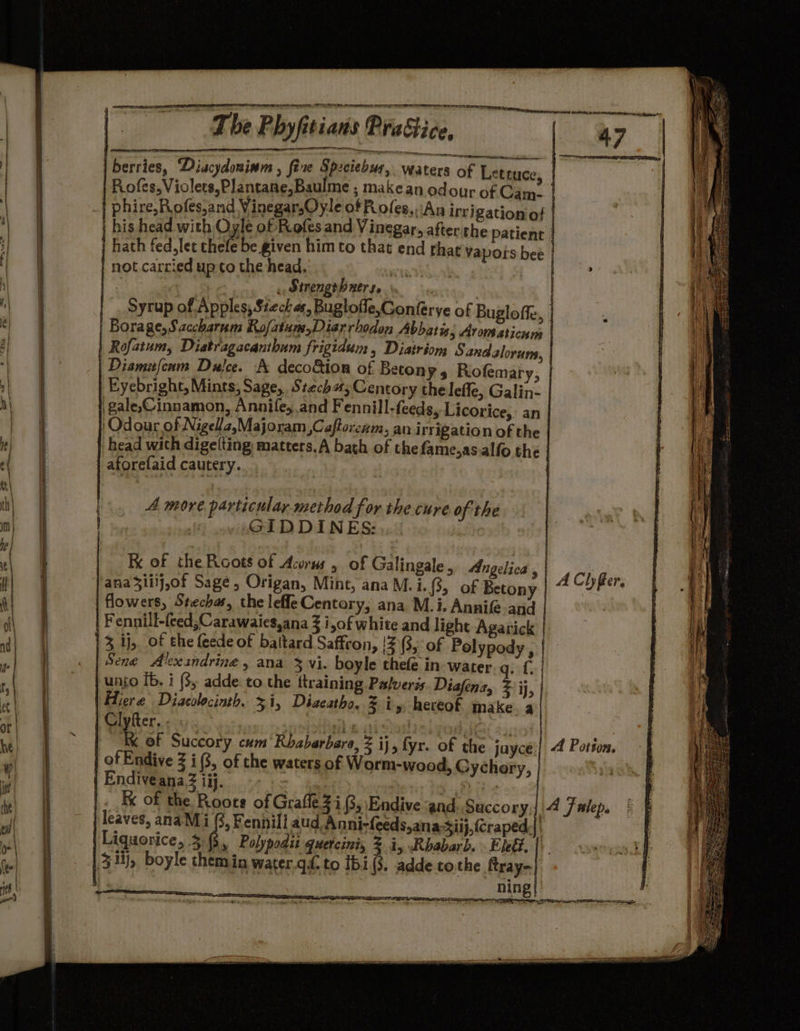 The Phyſitians Practice,
47
berries, Diacydonium, fine Speciebus, waters of Lettuce,
Roſes, Violets, Plantane, Baulme; make an odour of Cam-
phire, Roſes, and Vinegar, Oyle of Roſes, An irrigation of
his head with Oyle of Roſes and Vinegar, after the patient
hath fed, let theſe be given him to that end that vapors bee
not carried up to the head.
Strengthners.
Syrup of Apples, Stechas, Bugloſſe, Conſerve of Bugloſſe,
Borage, Saccharum Roſatum, Diarrhodon Abbatis, Aromaticum
Roſatum, Diatragacanthum frigidum, Diatriom Sandalorum,
Diamuſcum Dulce. A decoction of Betony, Roſemary,
Eyebright, Mints, Sage, Stechas, Centory the leſſe, Galin-
gale, Cinnamon, Anniſe, and Fennill-ſeeds, Licorice, an
Odour of Nigella, Majoram, Caſtoreum, an irrigation of the
head with digeſting matters, A bath of the ſame, as alſo the
aforeſaid cautery.
A more particular method for the cure of the
GIDDINES:
℞ of the Roots of Acorus, of Galingale, Angelica,
ana ʒiiij, of Sage, Origan, Mint, ana M. i. ß, of Betony
flowers, Stechas, the leſſe Centory, ana M. i. Anniſe and
Fennill-ſeed, Carawaies, ana ℥ i, of white and light Agarick
ʒ ij, of the ſeede of baſtard Saffron, ℥ ß, of Polypody,
Sene Alexandrine, ana ʒ vi. boyle theſe in water. q. ſ.
unto lb. i ß, adde to the ſtraining Pulveris Diaſena, ℥ ij,
Hiere Diacolocinth. ʒi, Diacatho. ℥ i, hereof make a
Clyſter.
A Clyſter.
℞ of Succory cum Rhabarbaro, ℥ ij, ſyr. of the juyce
of Endive ℥ i ß, of the waters of Worm-wood, Cychory,
Endive ana ℥ iij.
A Potion.
℞ of the Roots of Graſſe ℥ i ß, Endive and Succory
leaves, ana M i ß, Fennill and Anni-ſeeds, ana ʒiij, ſcraped
Liquorice, ʒ ß, Polypodii quercini, ℥ i, Rhabarb. Elect.
ʒ iij, boyle them in water q.ſ. to lbi ß. adde to the ſtray-
A Julep.
ning